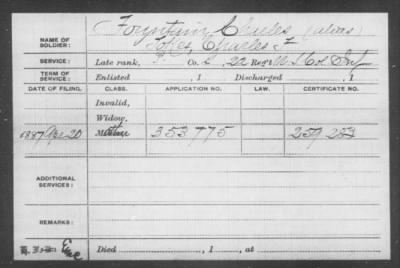 NAME OF SOLDIER: Fountain Charles (alias)
Charles F
SERVICE: Late rank, Co. 22 Reg't U.S.C. Inf
TERM OF SERVICE: Enlisted , 1 Discharged , 1
DATE OF FILING. CLASS. APPLICATION NO. LAW. CERTIFICATE NO.
Invalid,
Widow,
1887 Apr 20 Mother 353775 259 223
ADDITIONAL SERVICES:
REMARKS:
Died , 1 , at